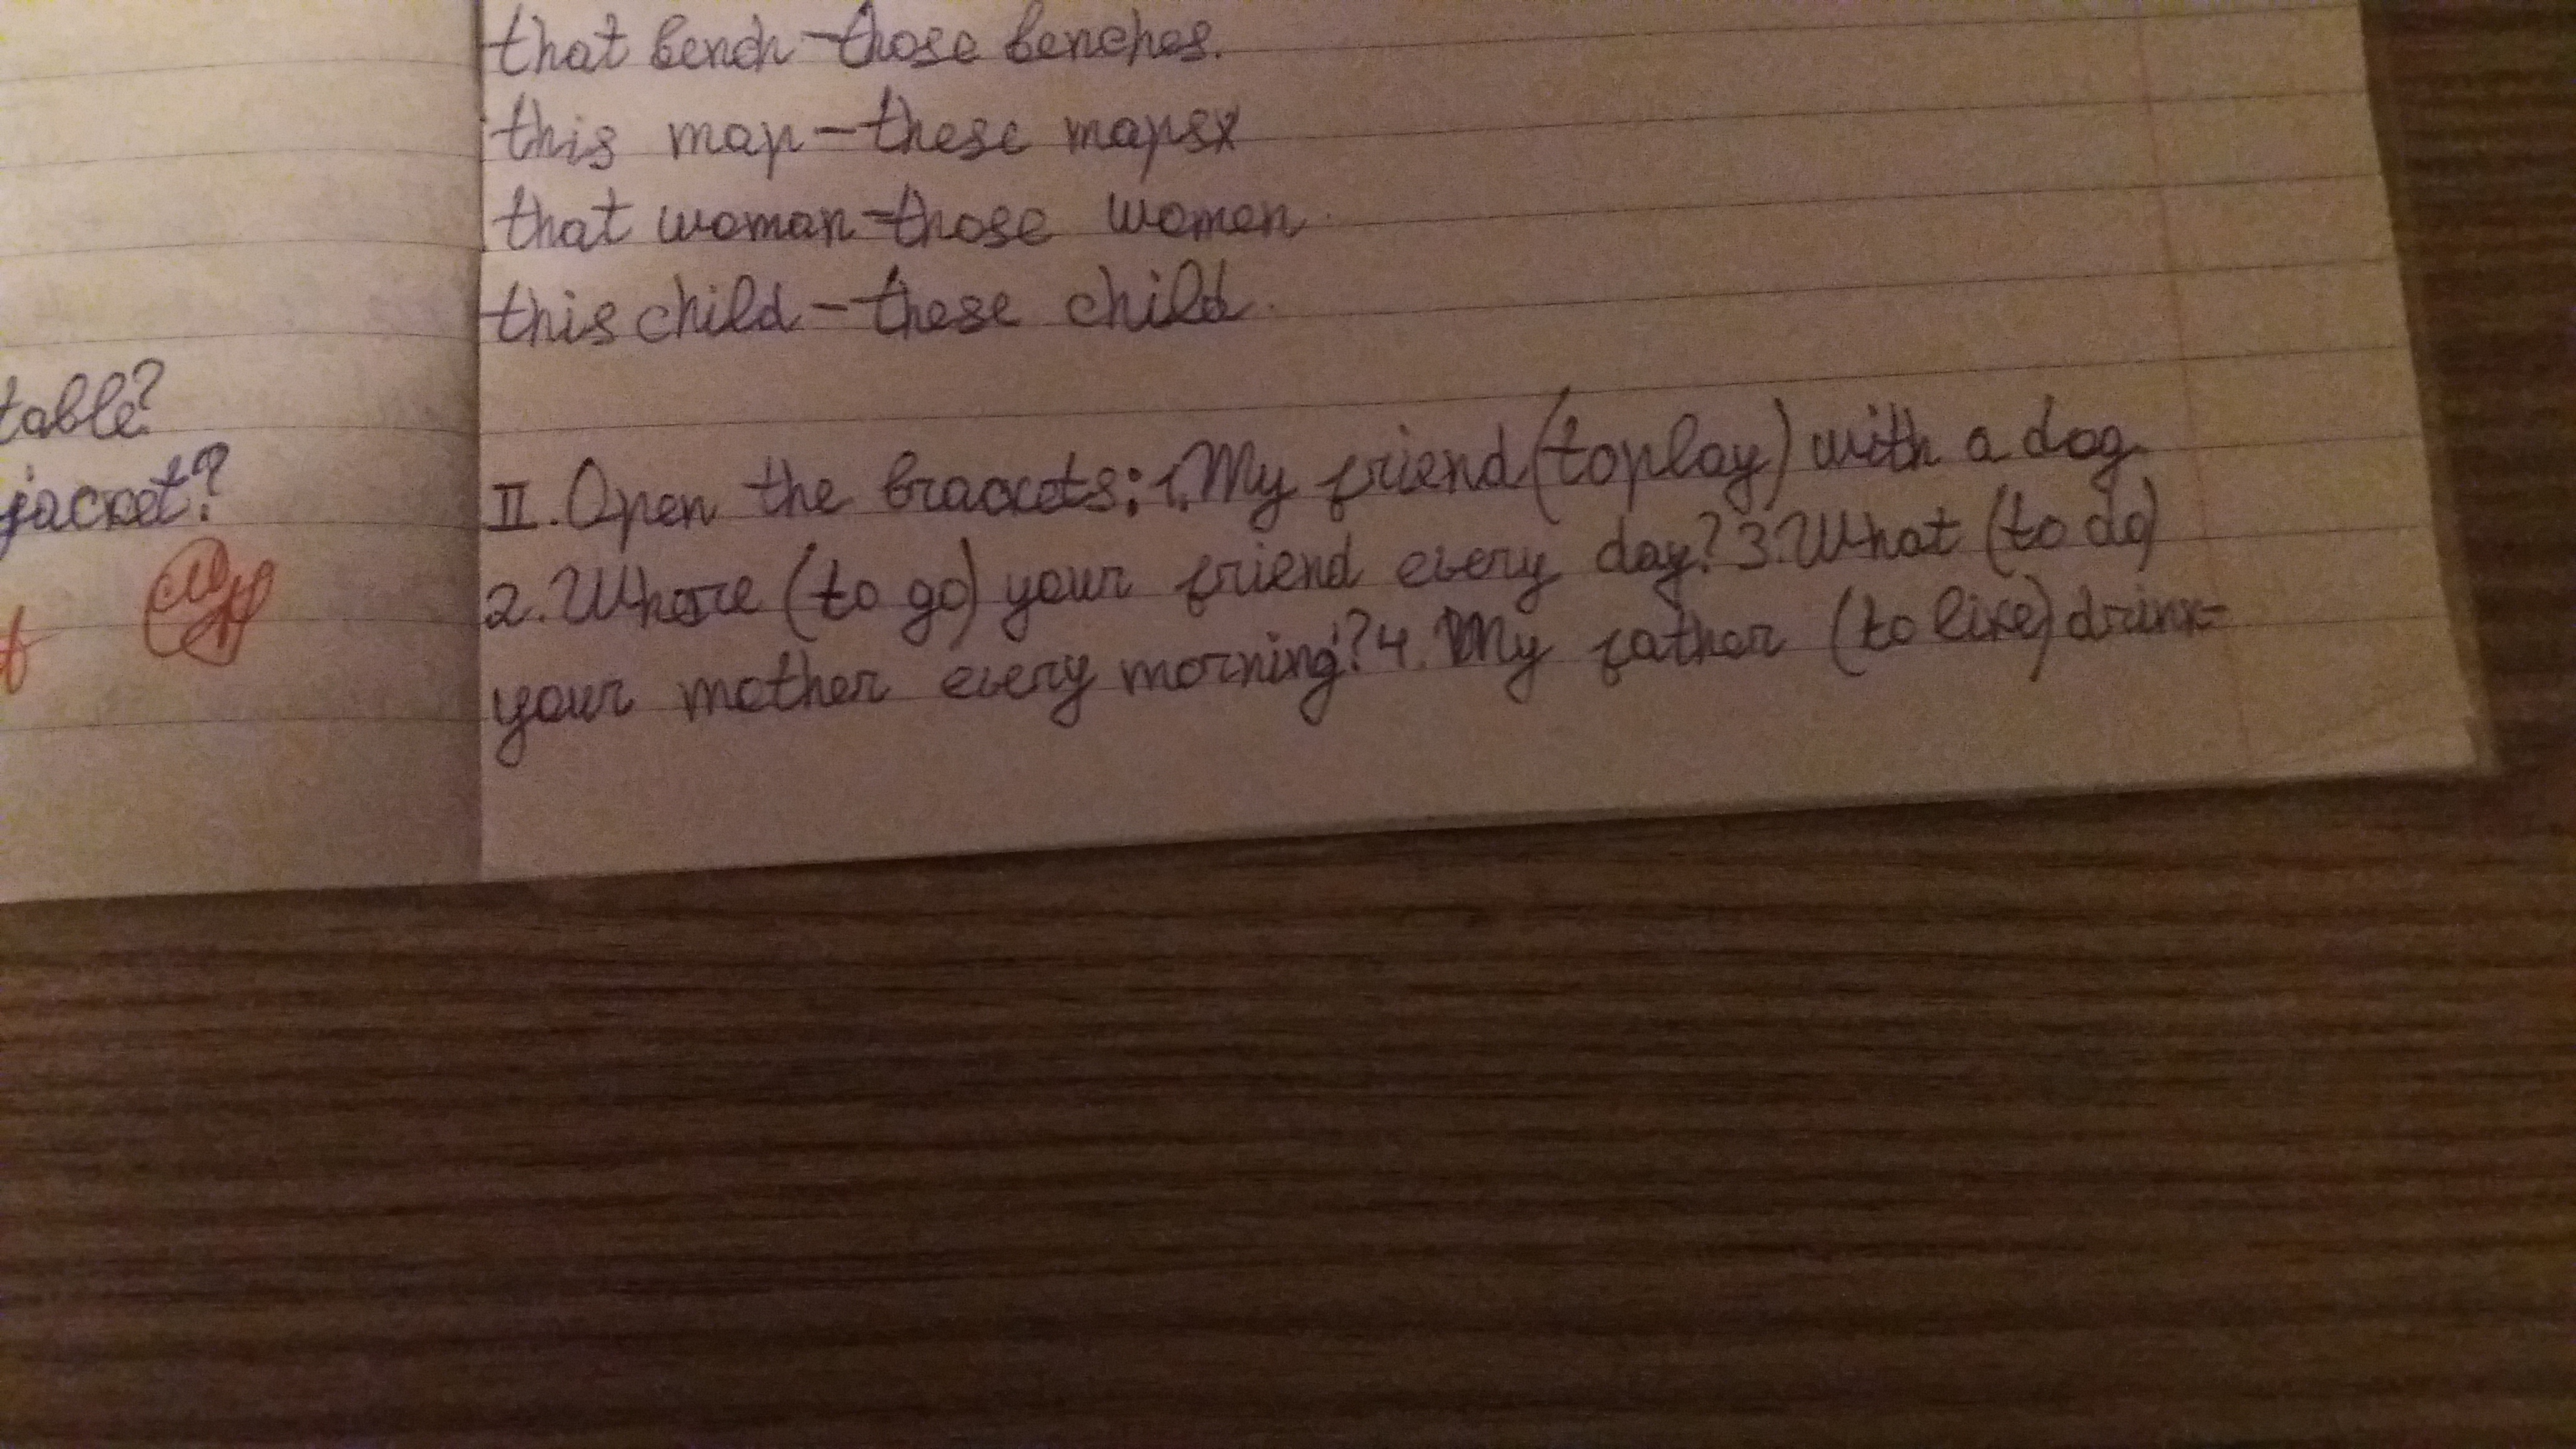 table?
jacket?
that bench - those benches.
this map - these maps
that woman - those women.
this child - these child.
II. Open the brackets: 1. My friend (to play) with a dog.
2. Where (to go) your friend every day? 3. What (to do)
your mother every morning? 4. My father (to like) drink-